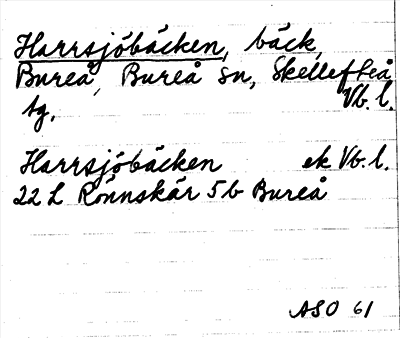 Harrsjöbäcken, bäck,
Bureå, Bureå sn, Skellefteå
tg. Vb. l.
Harrsjöbäcken ek Vb. l.
22 L Rönnskär 5b Bureå
ASO 61